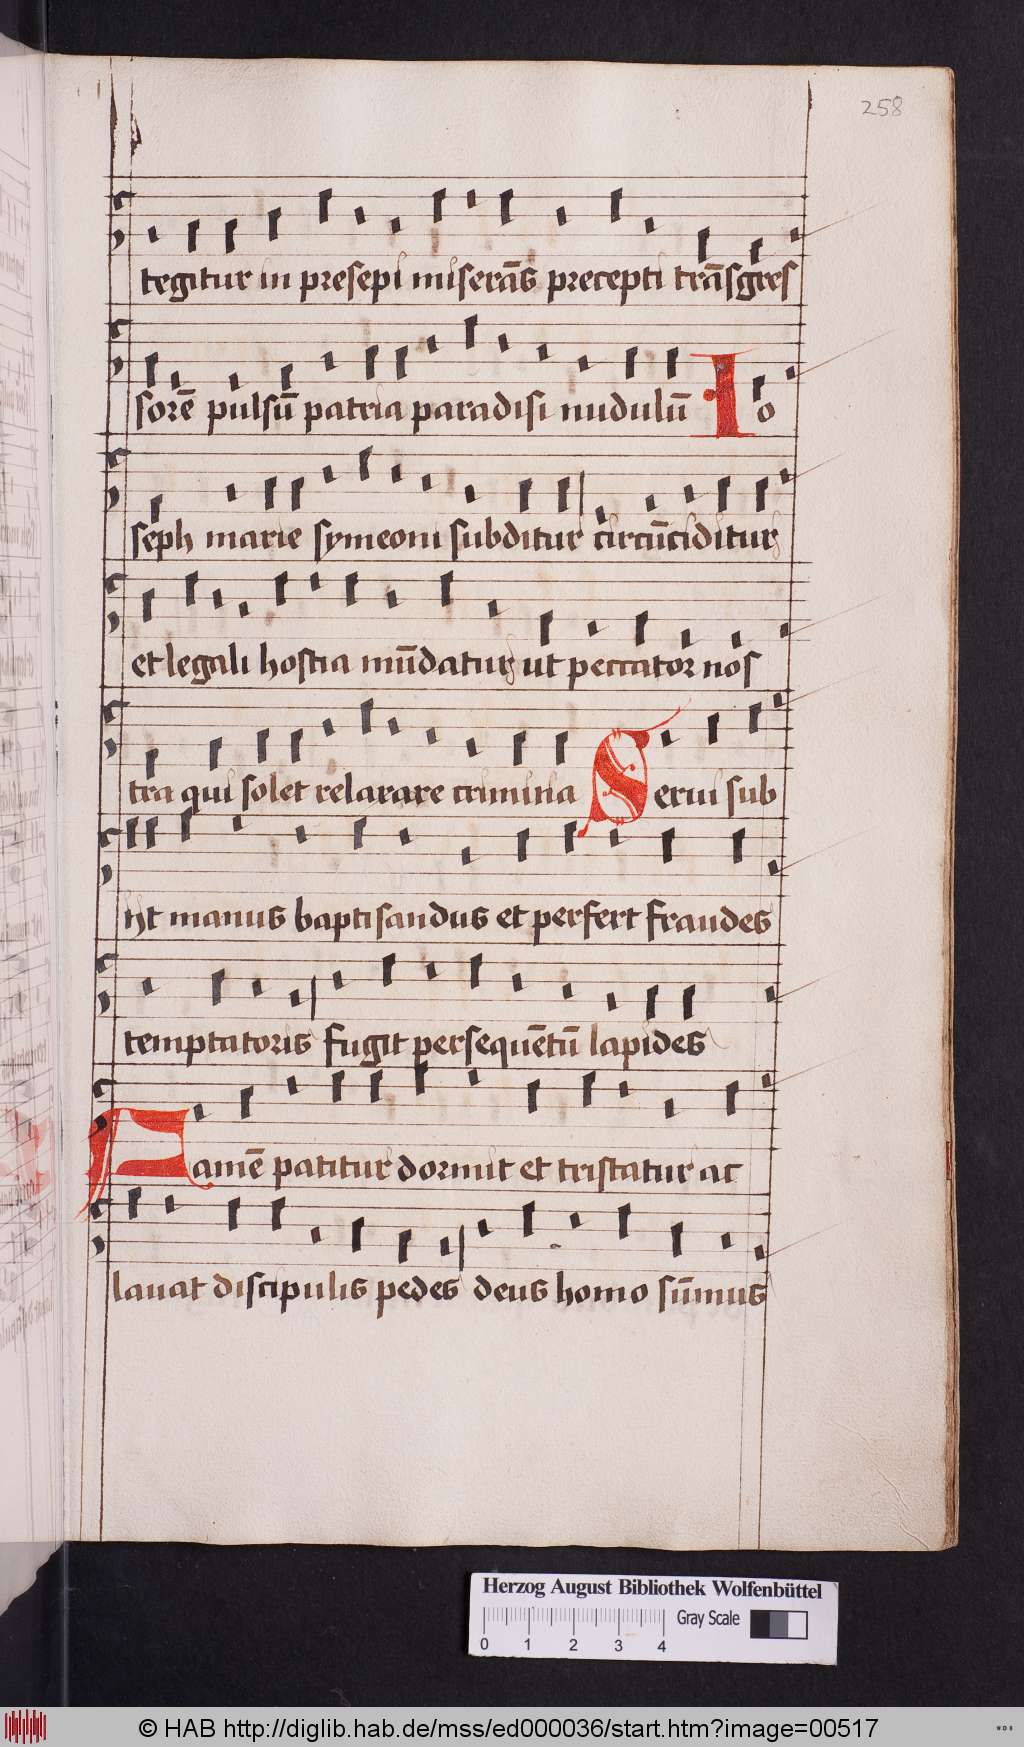 258
tegitur in presepi miserās precepti trāsgres
sorē pulsū patria paradisi nudulū Io
seph marie symeoni subditur circūciditur
et legali hostia mūdatur ut peccator nos
tra qui solet relaxare crimina Serui sub
ijt manus baptisandus et perfert fraudes
temptatoris fugit persequētū lapides
Famē patitur dormit et tristatur ac
lauat discipulis pedes deus homo sūmus
Herzog August Bibliothek Wolfenbüttel
Gray Scale
0 1 2 3 4
© HAB http://diglib.hab.de/mss/ed000036/start.htm?image=00517